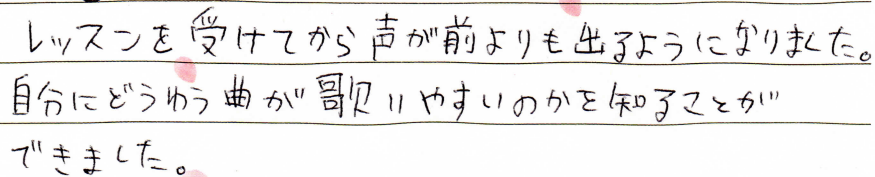 レッスンを受けてから声が前よりも出るようになりました。
自分にどうゆう曲が歌いやすいのかを知ることが
できました。